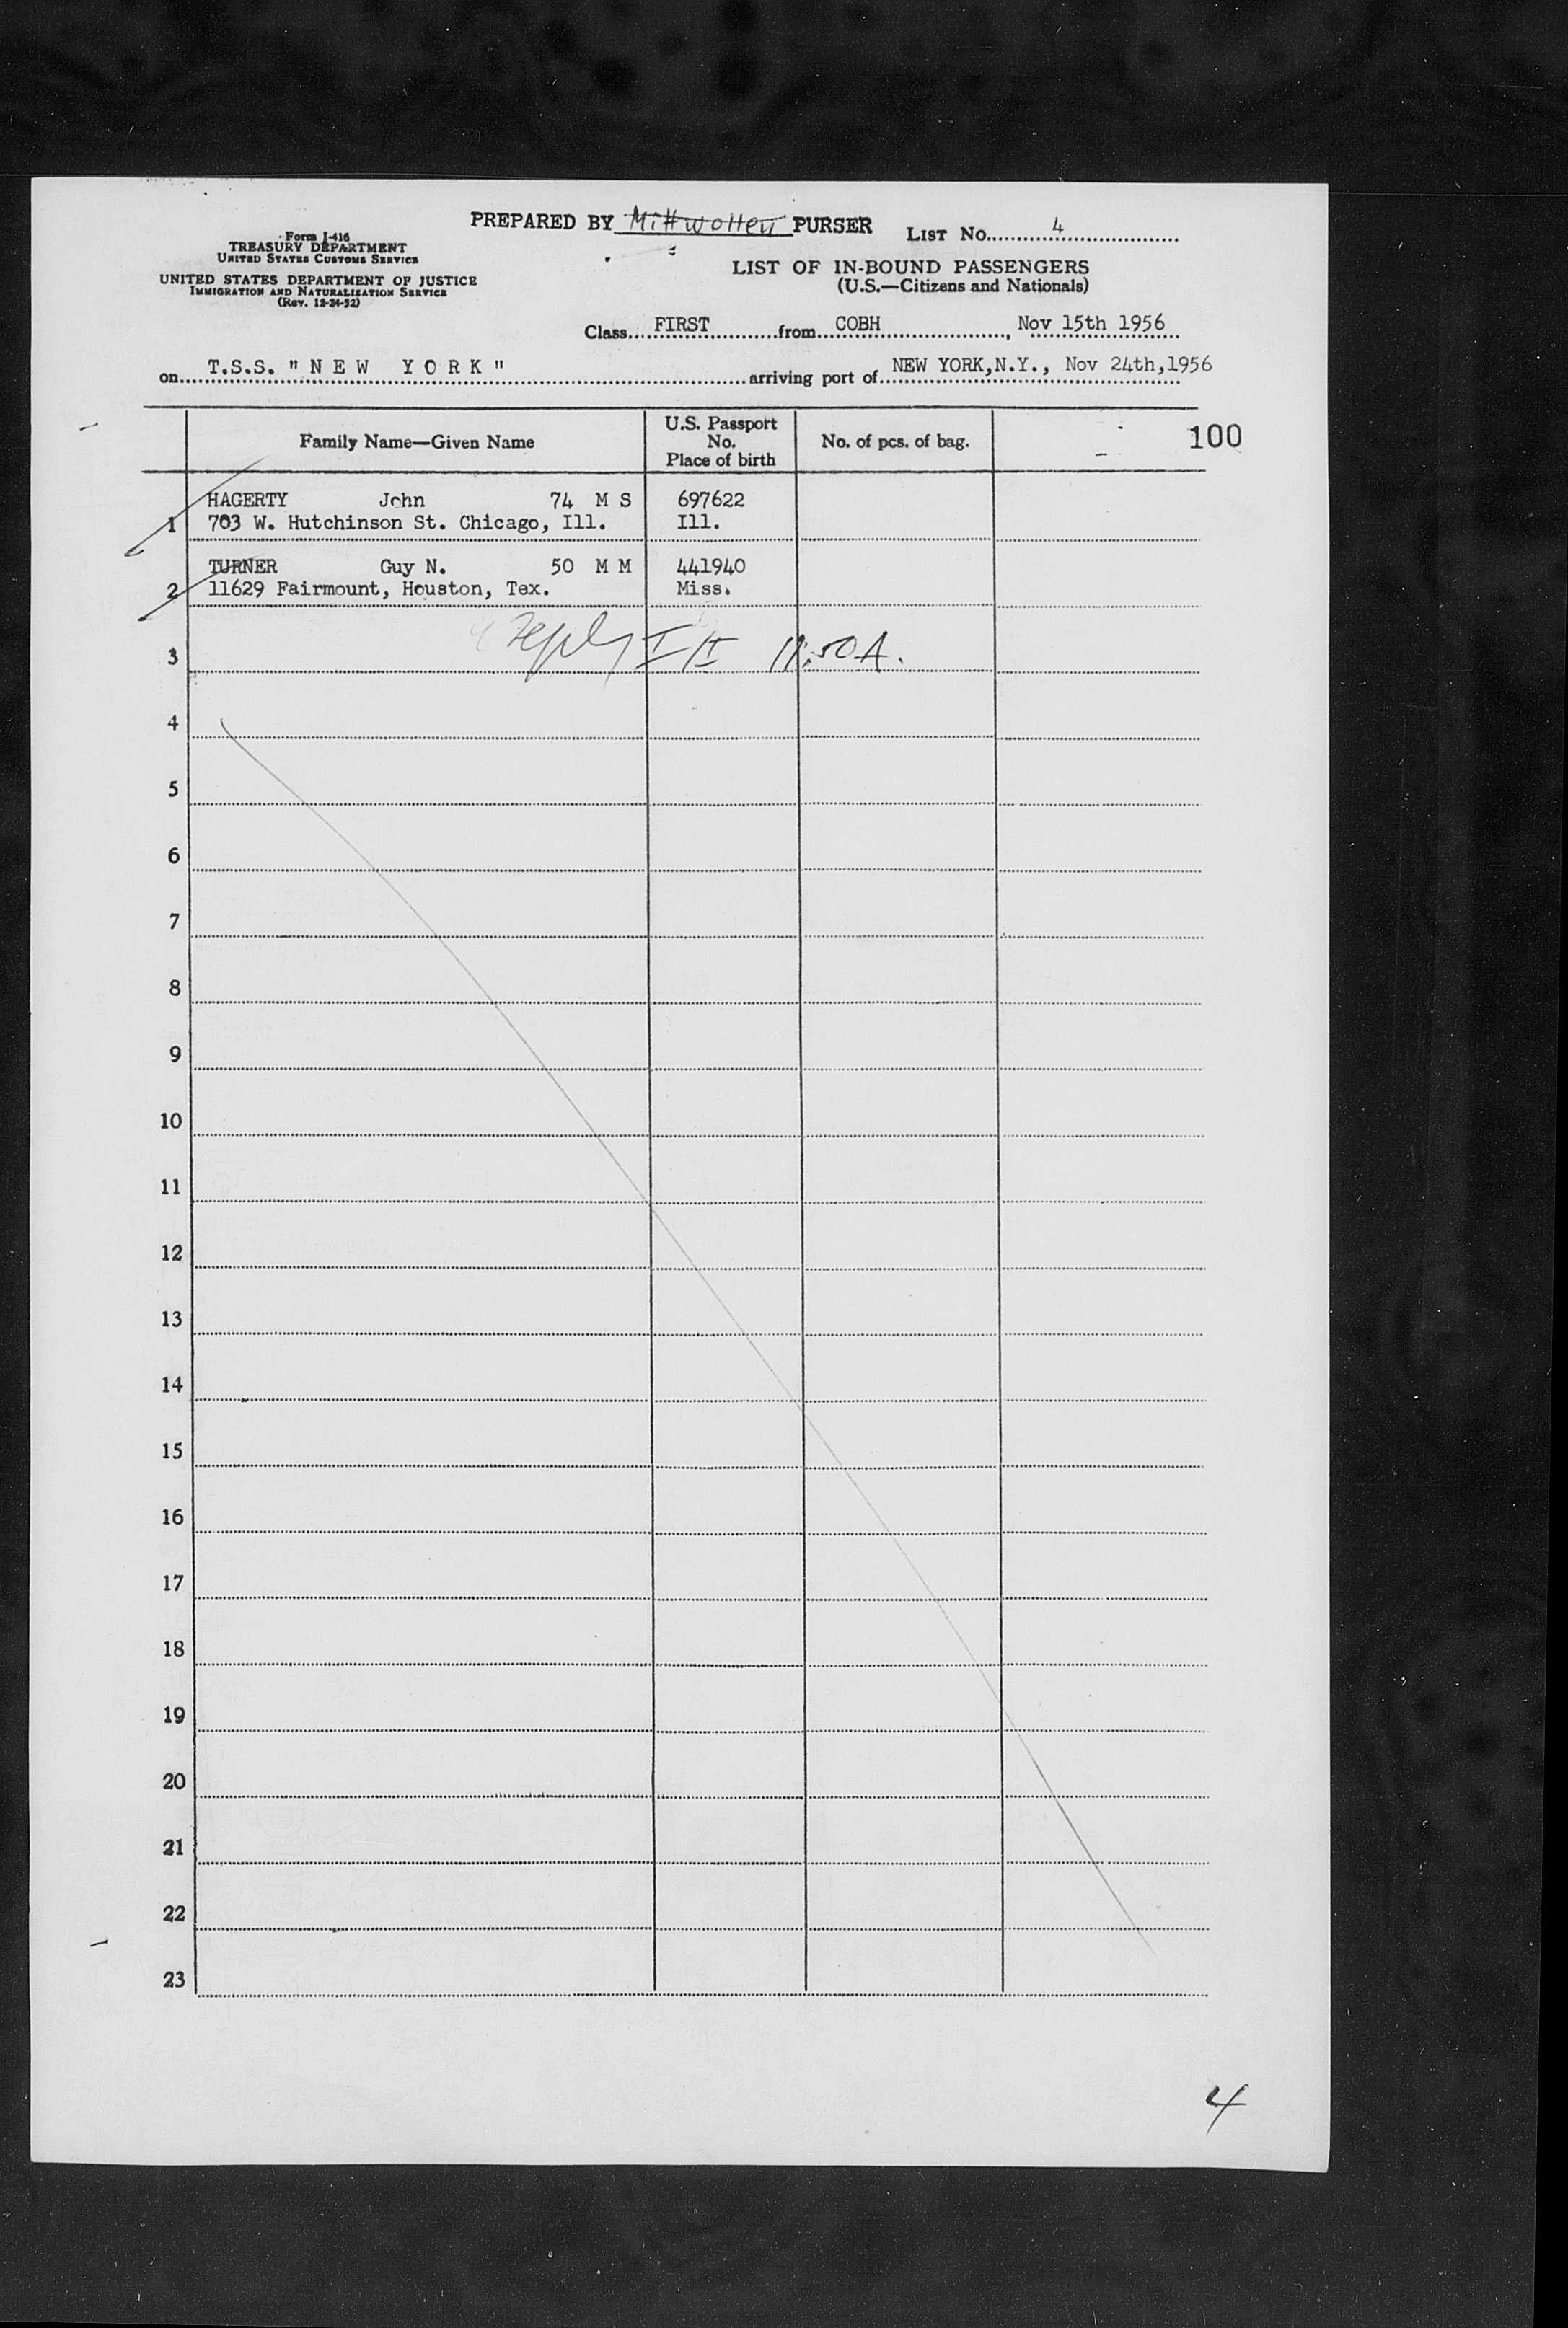 PREPARED BY Mittwollen PURSER
LIST No. 4
Form I-416
TREASURY DEPARTMENT
UNITED STATES CUSTOMS SERVICE
UNITED STATES DEPARTMENT OF JUSTICE
IMMIGRATION AND NATURALIZATION SERVICE
(Rev. 12-24-52)
LIST OF IN-BOUND PASSENGERS
(U.S.—Citizens and Nationals)
Class FIRST from COBH, Nov 15th 1956
on T.S.S. "NEW YORK" arriving port of NEW YORK,N.Y., Nov 24th,1956
Family Name—Given Name
U.S. Passport No. Place of birth
No. of pcs. of bag.
100
HAGERTY John 74 M S 697622
1 703 W. Hutchinson St. Chicago, Ill. Ill.
TURNER Guy N. 50 M M 441940
2 11629 Fairmount, Houston, Tex. Miss.
3 11:50 A.
4
5
6
7
8
9
10
11
12
13
14
15
16
17
18
19
20
21
22
23
4